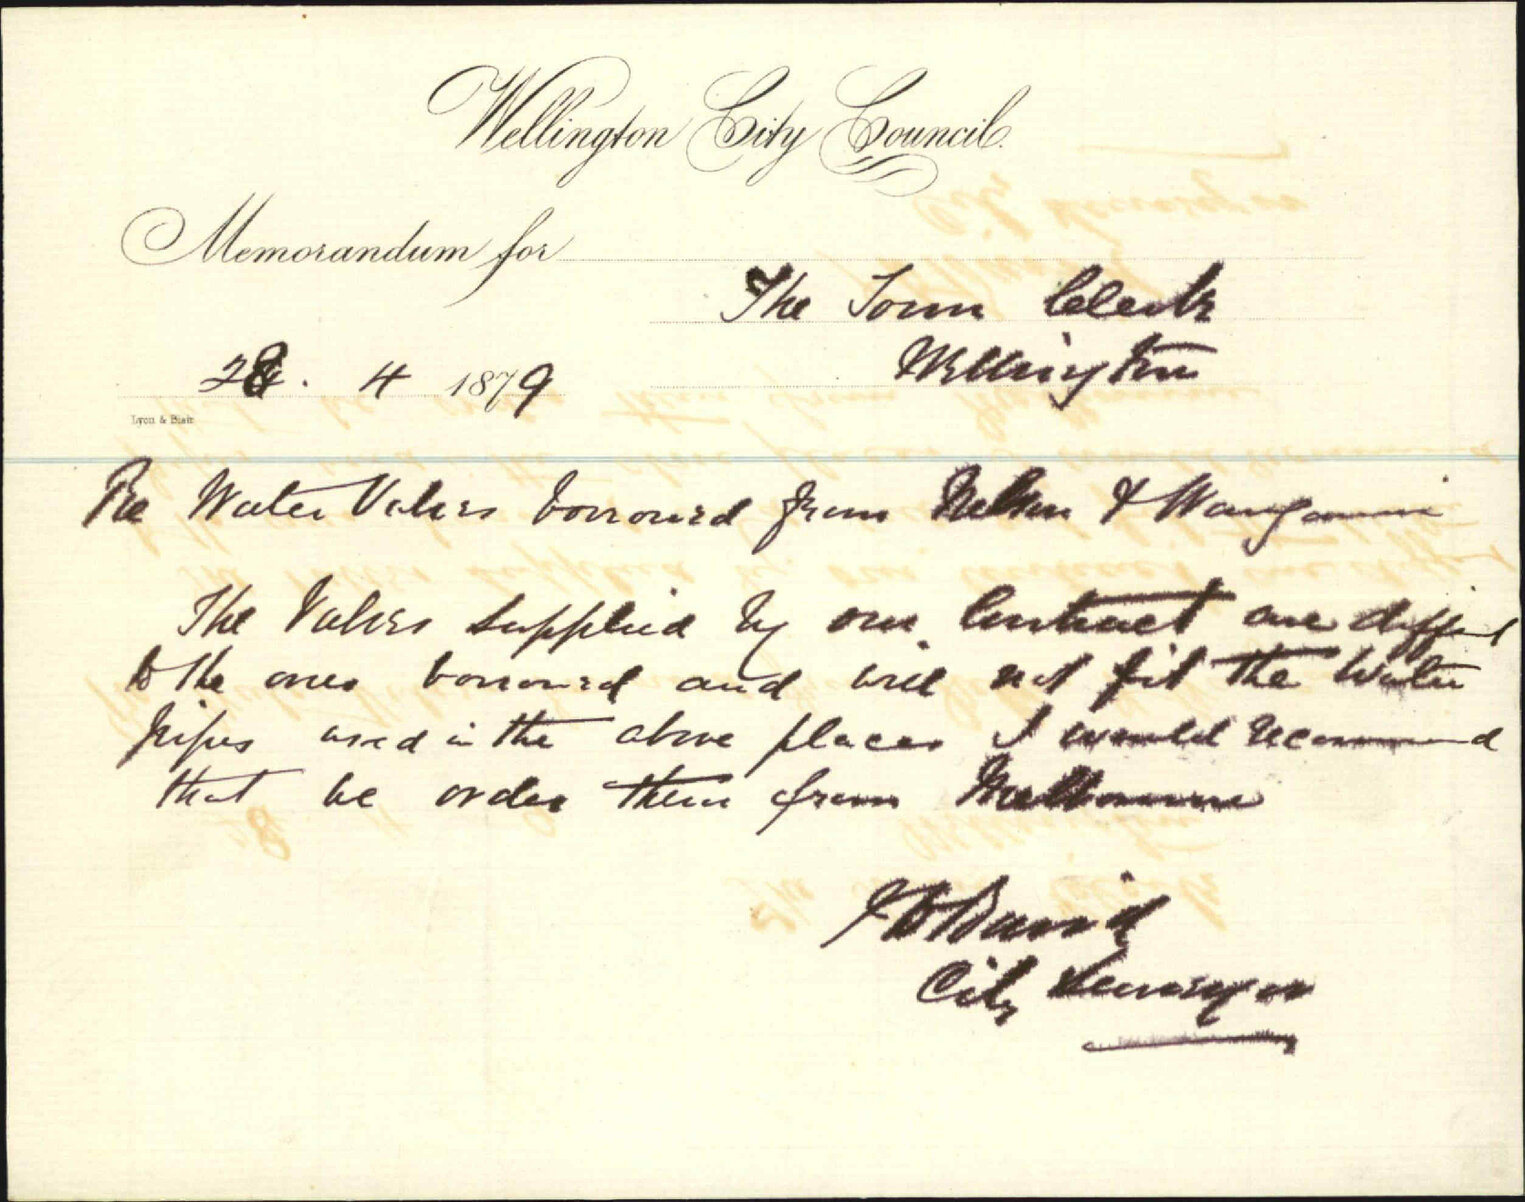 Wellington City Council.
Memorandum for
The Town Clerk
Wellington
28. 4 1879
Lyon & Blair
Re Water Valves borrowed from Nelson & Wanganui
The Valves supplied by our Contract are different
to the ones borrowed and will not fit the Water
pipes used in the above places I would recommend
that we order them from Melbourne
Baird
City Surveyor